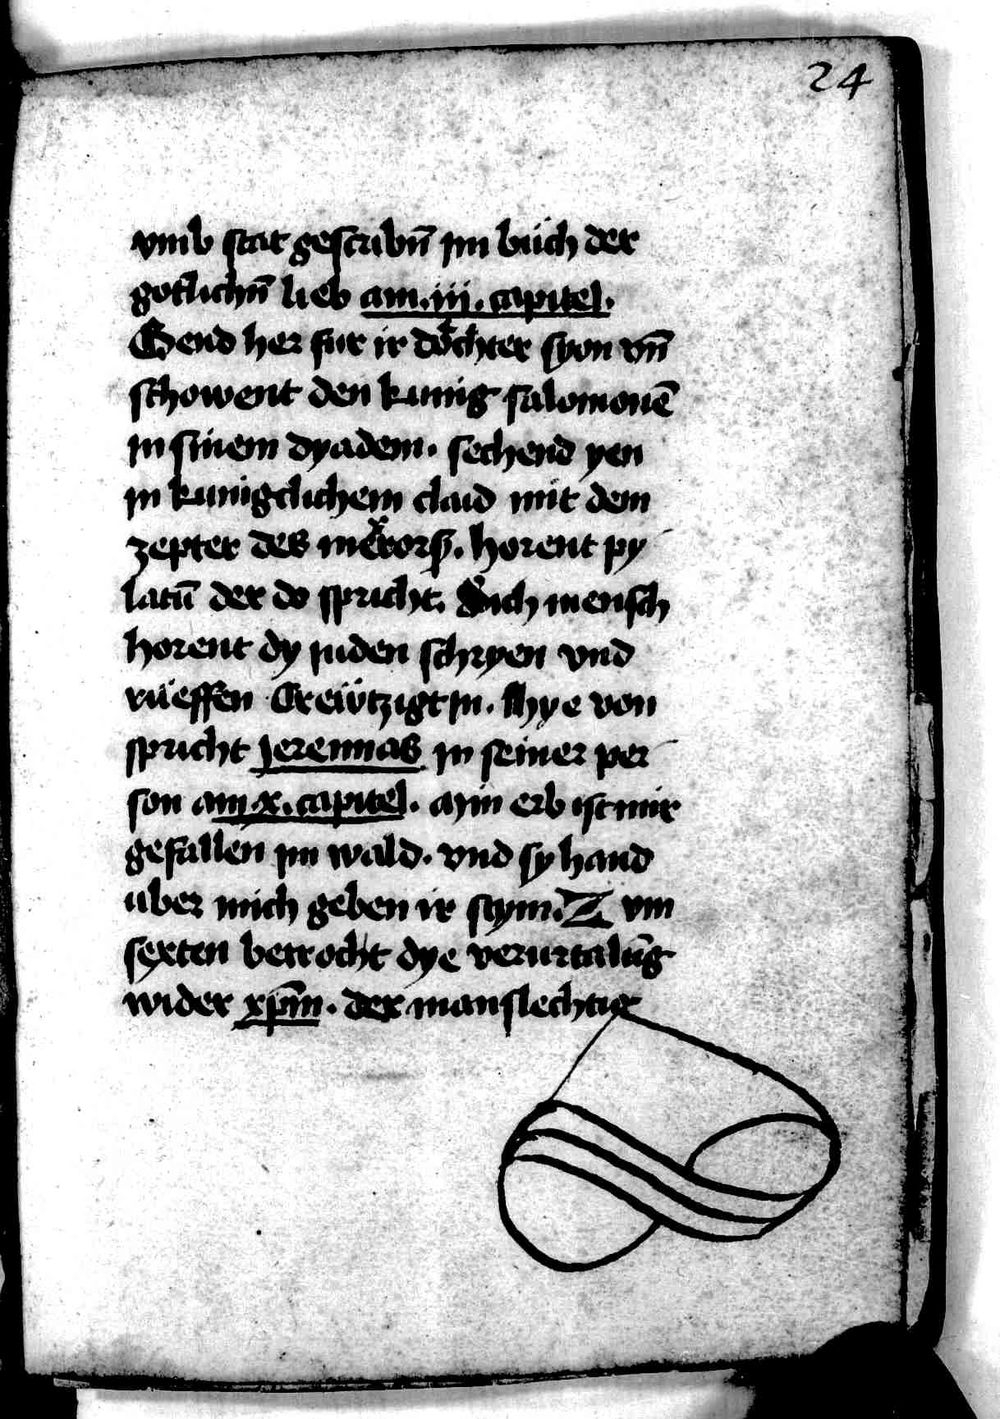 24
vmb stat gescribn̄ jm bůch der
gotlichn̄ lieb am .iij. capitel.
Gend her fur ir dochter syon vn̄
schowent den kunig salomonē
jn sinem dyadem. sechend yen
jn kunigclichem claid mit dem
zepter des horent py
latū der do spricht. Sich mensch
horent dy juden schryen vnd
rüeffen Creützigt jn. Hye von
spricht Jeremias jn seiner per
son am .x. capitel. ayin erb ist mir
gefallen jm wald. vnd sy hand
uber mich geben ir stym. Z vm
sexten betrocht dye verurtalūg
wider xp̄m. der manslechtig